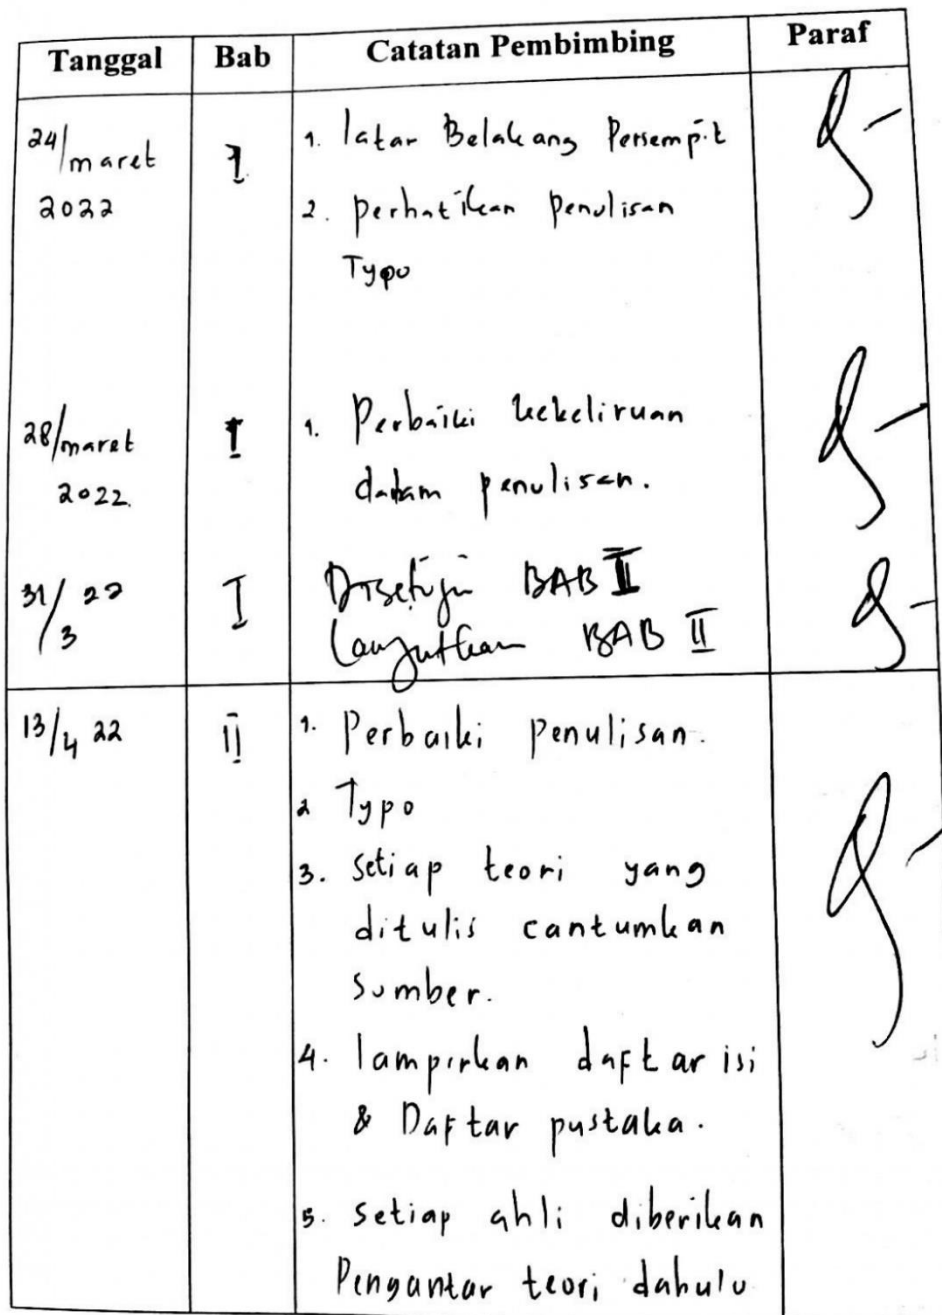 Tanggal Bab Catatan Pembimbing Paraf
24/maret I 1. latar Belakang Persempit
2022 2. perhatikan penulisan
Typo
28/maret I 1. Perbaiki kekeliruan
2022. dalam penulisan.
31/3 22 I Disetujui BAB II
Lanjutkan BAB II
13/4 22 II 1. Perbaiki penulisan.
2 Typo
3. setiap teori yang
ditulis cantumkan
sumber.
4. lampirkan daftar isi
& Daftar pustaka.
5. setiap ahli diberikan
Pengantar teori dahulu